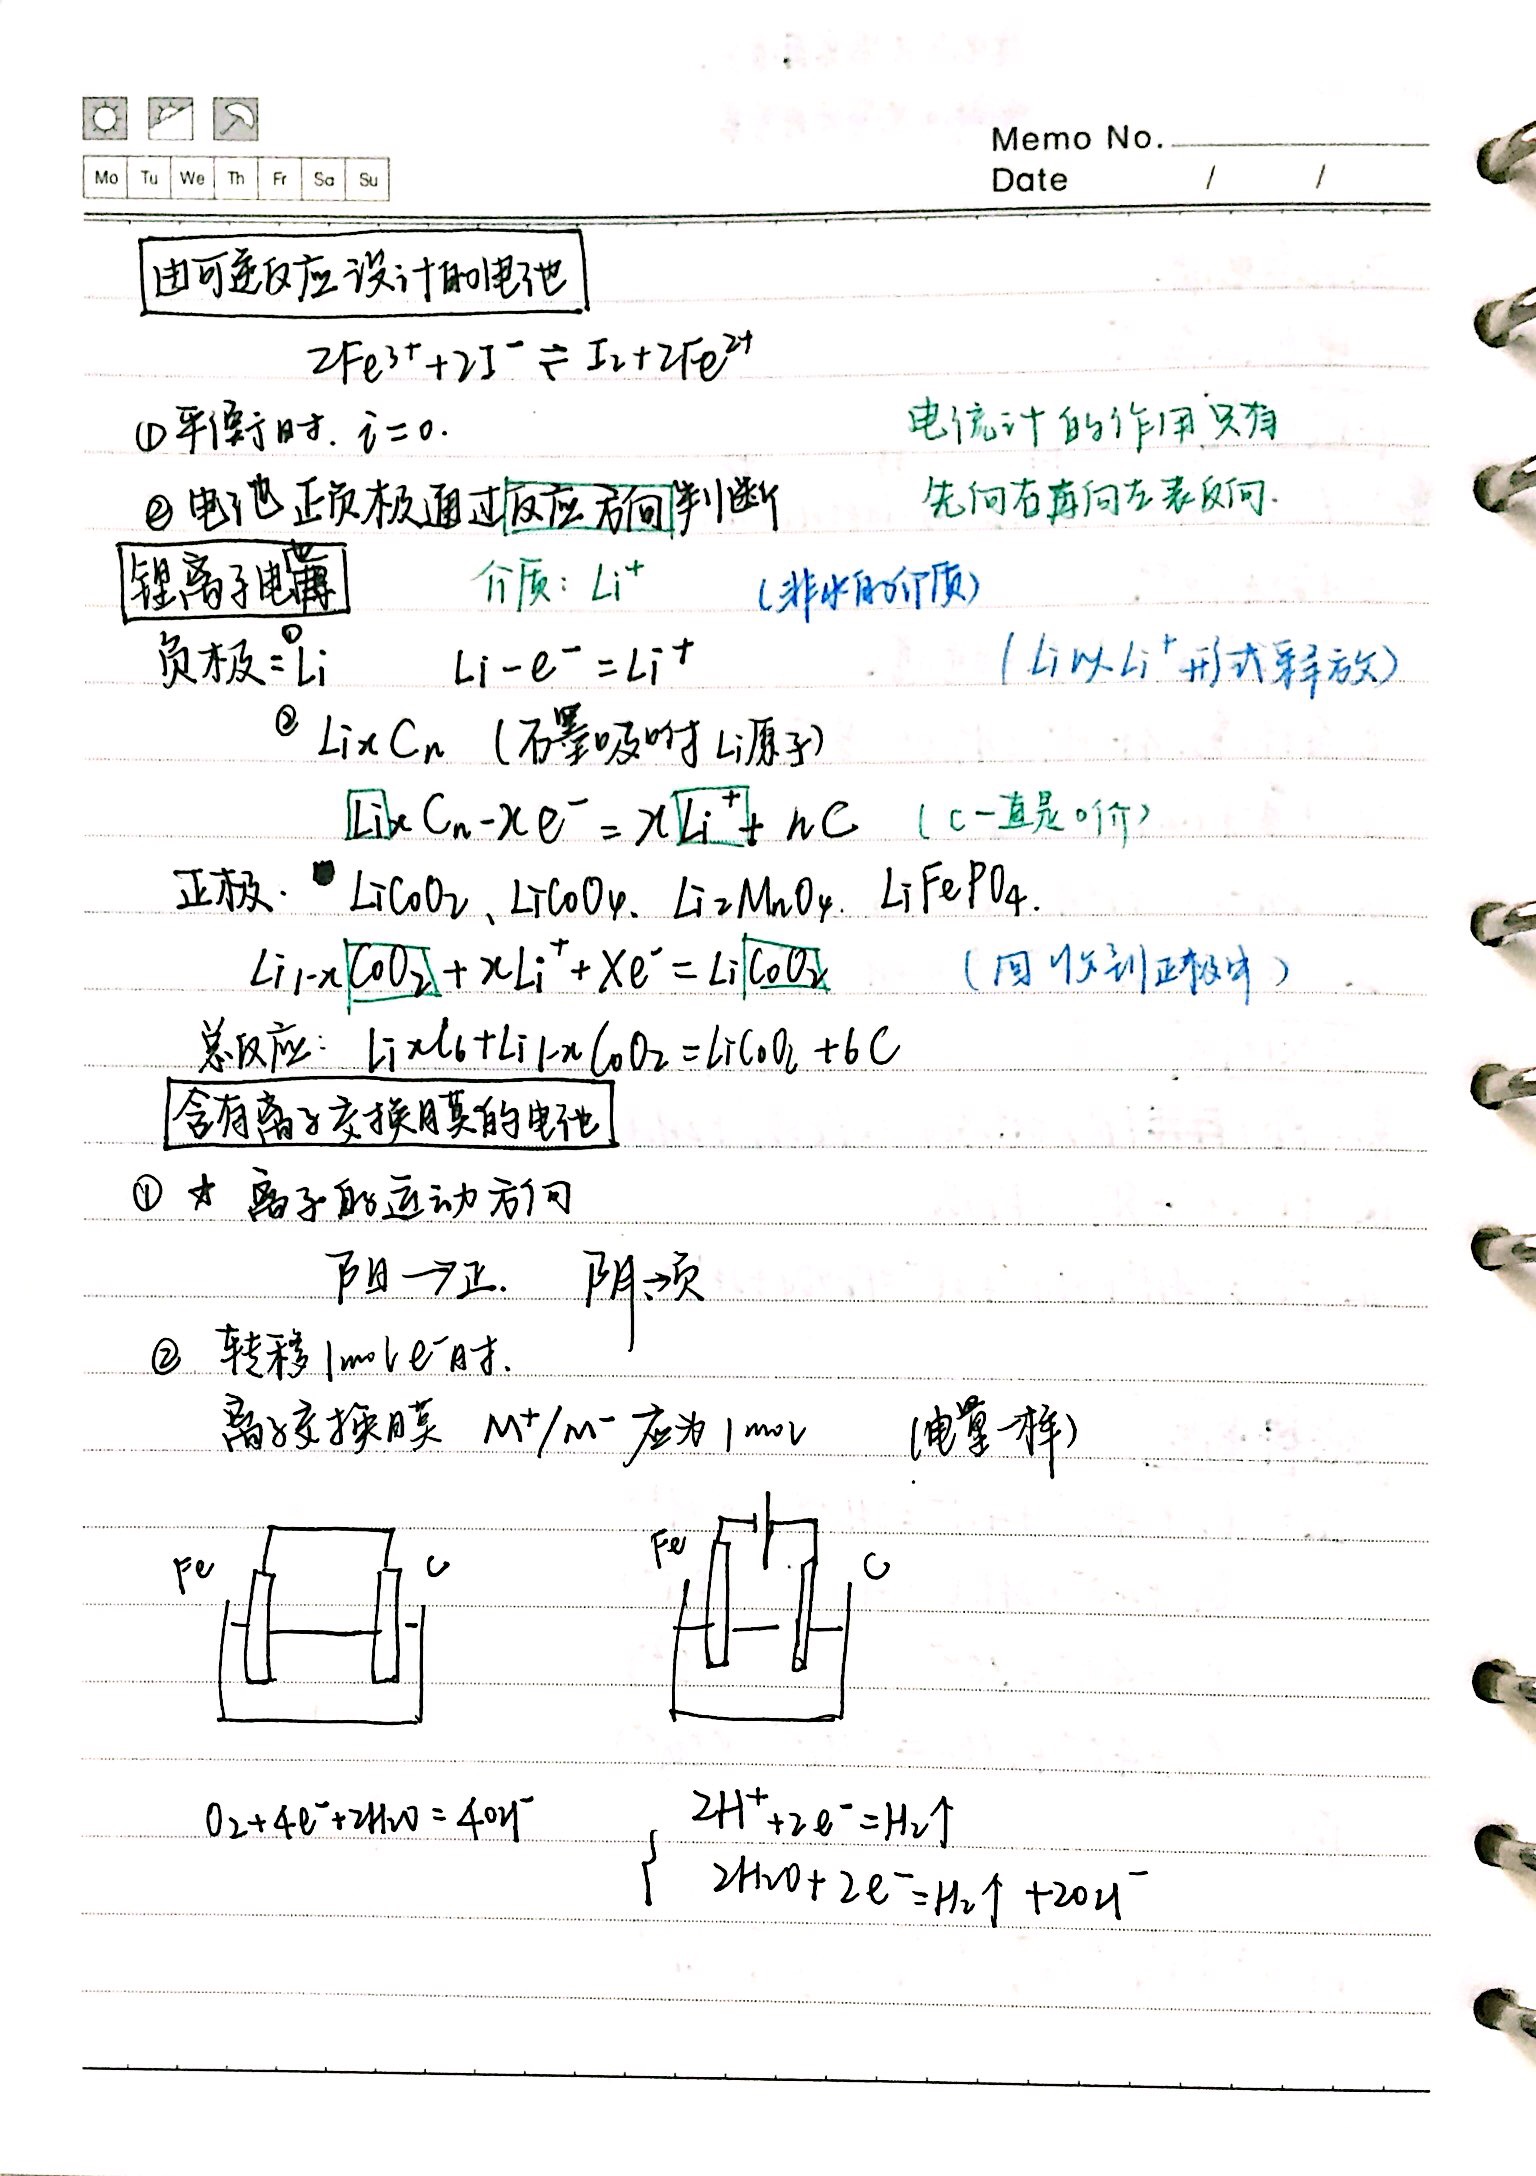 Memo No.
Mo Tu We Th Fr Sa Su
Date / /
由可逆反应设计的电池
2Fe³⁺+2I⁻⇌I₂+2Fe²⁺
①平衡时. i=0.
电流计的作用只有
②电池正负极通过反应方向判断
先向右再向左表反向.
锂离子电池
介质: Li⁺ (非水的介质)
负极=①Li Li-e⁻=Li⁺ (Li以Li⁺形式释放)
②LixCn (石墨吸附Li原子)
LixCn-xe⁻=xLi⁺+nC (C一直是0价)
正极. LiCoO₂、LiCoO₄、Li₂MnO₄. LiFePO₄.
Li₁₋xCoO₂+xLi⁺+Xe⁻=LiCoO₂ (回收到正极中)
总反应: LixC₆+Li₁₋xCoO₂=LiCoO₂+6C
含有离子交换膜的电池
① ☆ 离子的运动方向
阳→正. 阴→负
② 转移1mol e⁻时.
离子交换膜 M⁺/M⁻应为1mol (电量一样)
Fe C Fe C
O₂+4e⁻+2H₂O=4OH⁻
2H⁺+2e⁻=H₂↑
2H₂O+2e⁻=H₂↑+2OH⁻